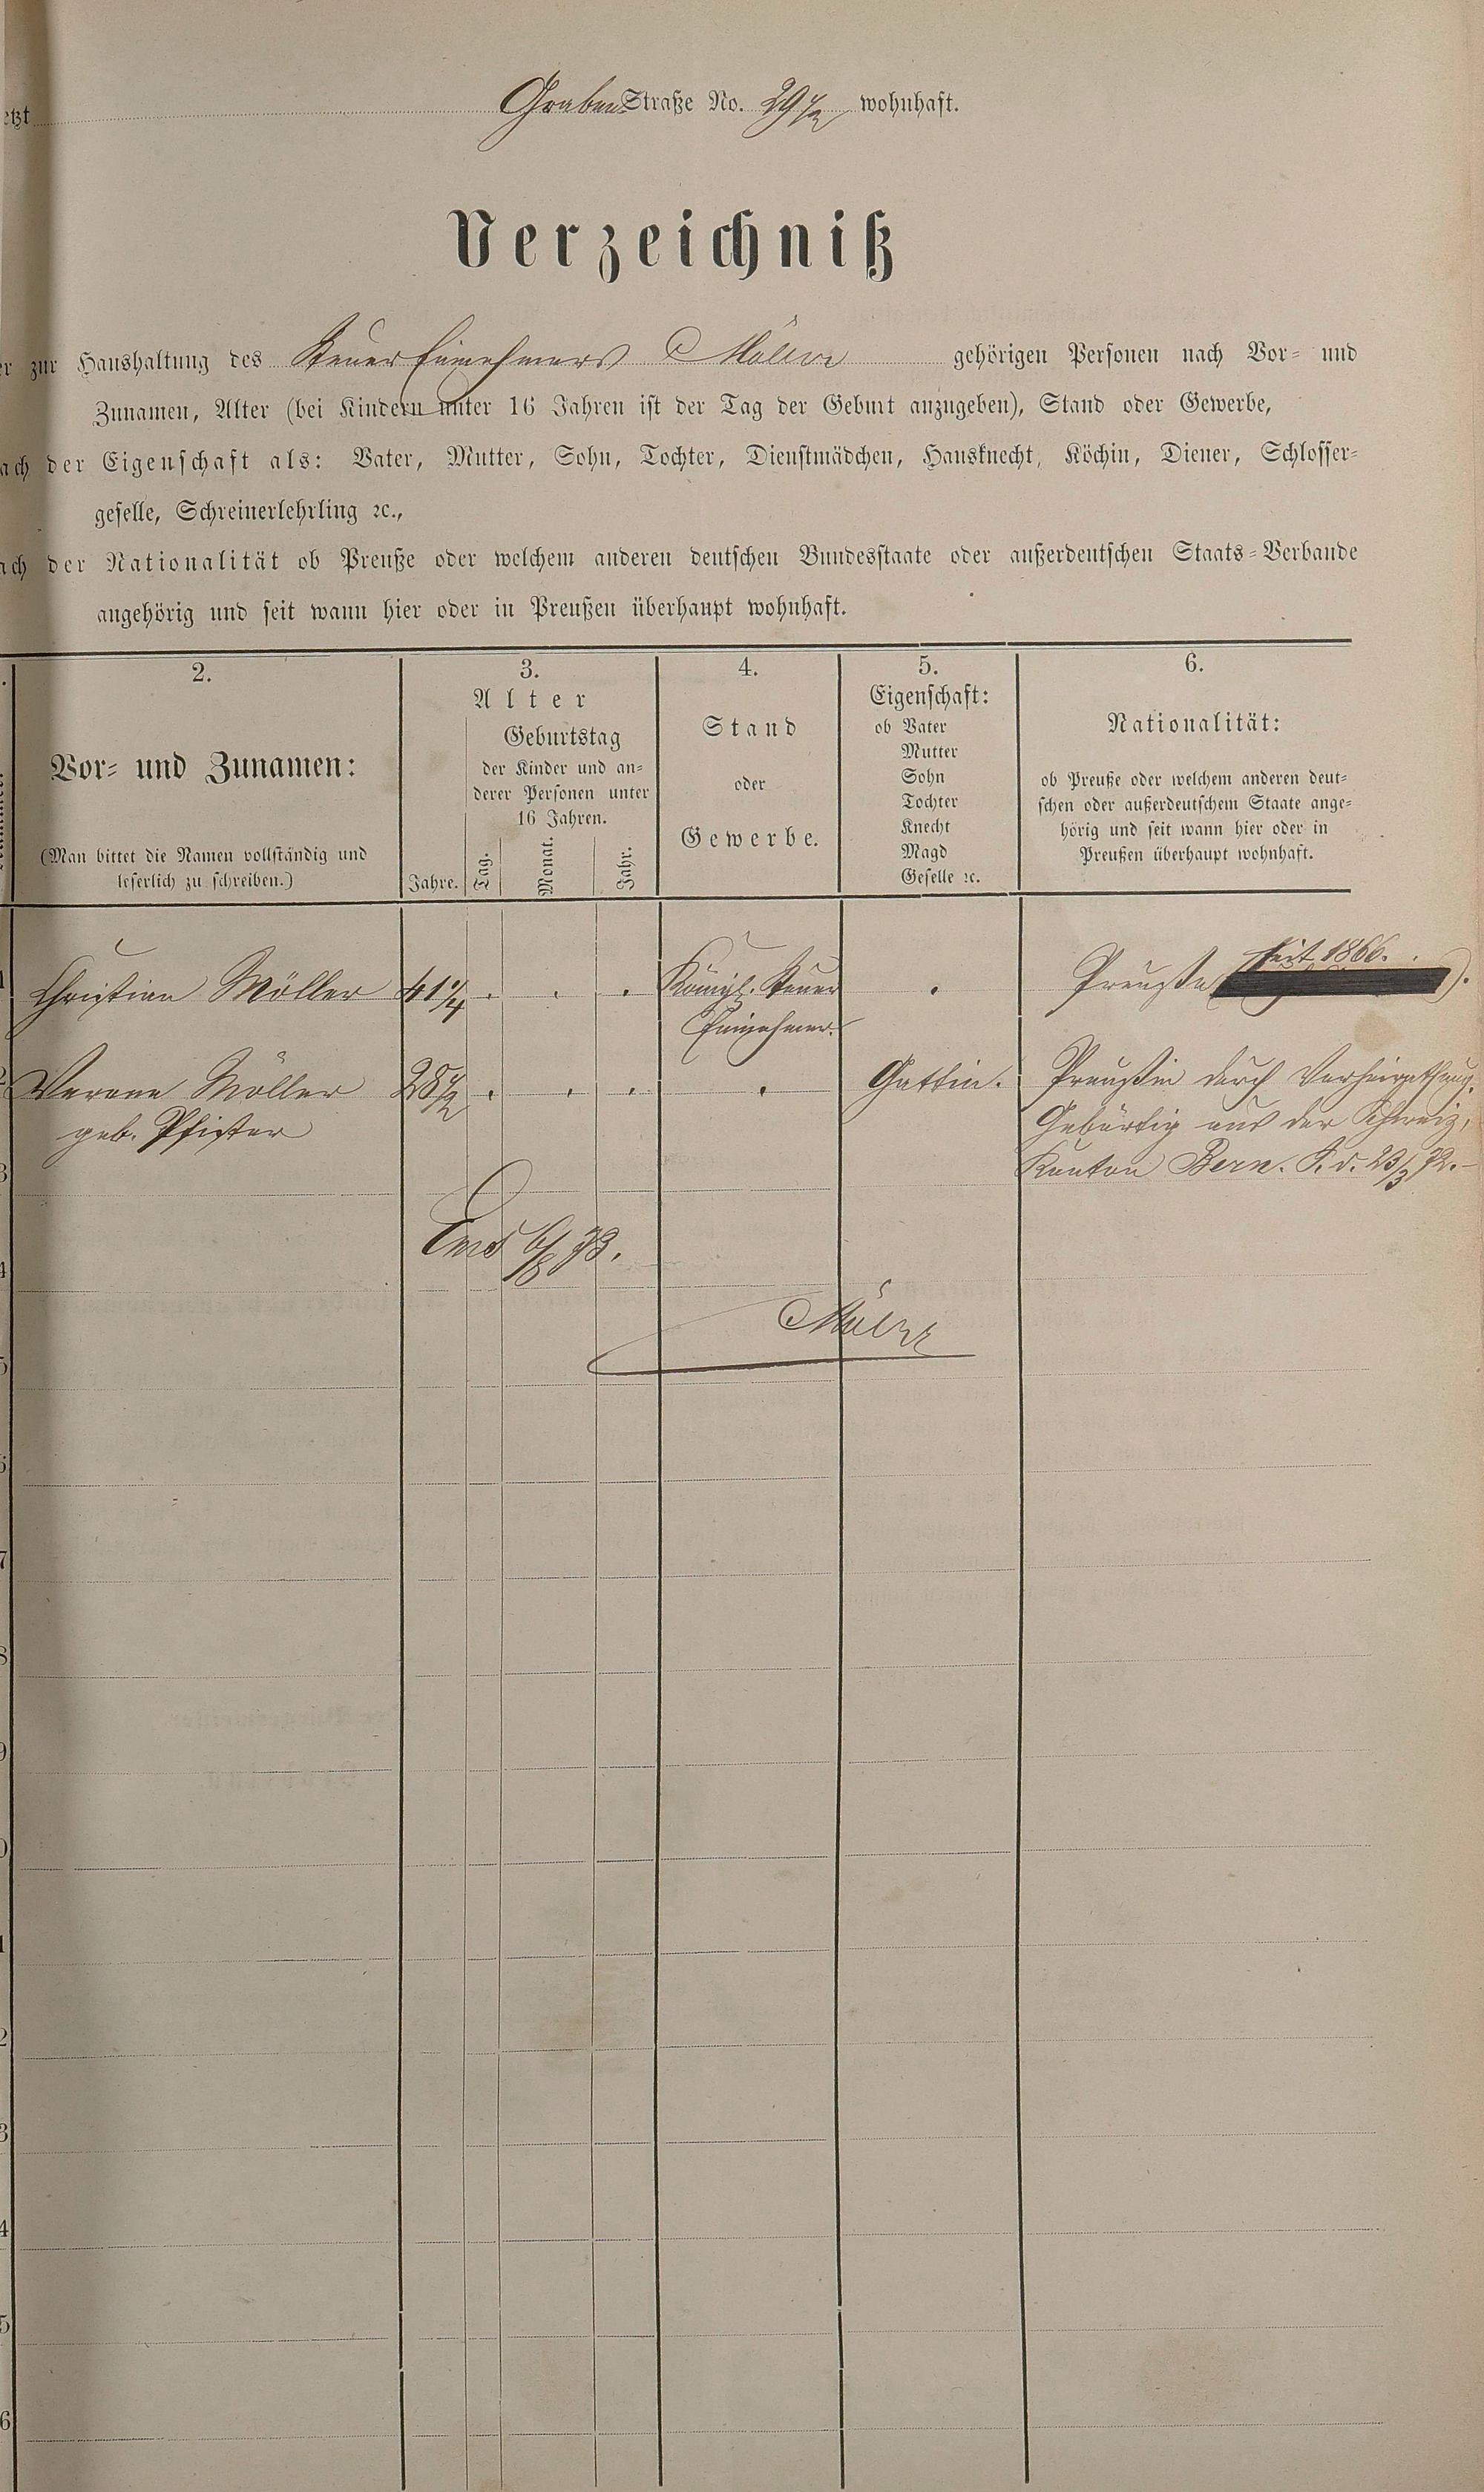 etzt Graben Straße No. 29 1/2 wohnhaft.
Verzeichniß
er zur Haushaltung des Steuer Einnehmers Möller gehörigen Personen nach Vor- und
Zunamen, Alter (bei Kindern unter 16 Jahren ist der Tag der Geburt anzugeben), Stand oder Gewerbe,
ach der Eigenschaft als: Vater, Mutter, Sohn, Tochter, Dienstmädchen, Hausknecht, Köchin, Diener, Schlosser-
geselle, Schreinerlehrling ꝛc.,
ach der Nationalität ob Preuße oder welchem anderen deutschen Bundesstaate oder außerdeutschen Staats-Verbande
angehörig und seit wann hier oder in Preußen überhaupt wohnhaft.
2.
Vor- und Zunamen:
(Man bittet die Namen vollständig und
leserlich zu schreiben.)
3.
Alter
Geburtstag
der Kinder und an-
derer Personen unter
16 Jahren.
Jahre. Tag. Monat. Jahr.
4.
Stand
oder
Gewerbe.
5.
Eigenschaft:
ob Vater
Mutter
Sohn
Tochter
Knecht
Magd
Geselle ꝛc.
6.
Nationalität:
ob Preuße oder welchem anderen deut-
schen oder außerdeutschem Staate ange-
hörig und seit wann hier oder in
Preußen überhaupt wohnhaft.
seit 1866.
1 Christian Möller 41 1/4 . . . Königl. Steuer . Preuße ).
Einnehmer.
2 Verena Möller 28 1/2 . . . . Gattin. Preußin durch Verheirathung.
geb. Pfister Gebürtig aus der Schweiz,
Kanton Bern. S. d. 23/3 72.
3
Ems 6/8 73.
4
Möller
5
6
7
8
9
0
1
2
3
4
5
6